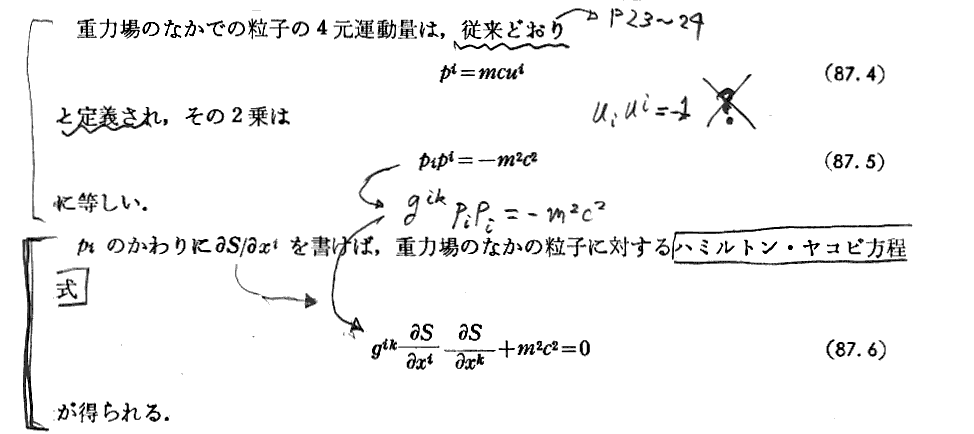 重力場のなかでの粒子の4元運動量は，従来どおり P23~24
pⁱ=mcuⁱ (87.4)
と定義され，その2乗は uᵢuⁱ=-1 ?
pᵢpⁱ=-m²c² (87.5)
に等しい．
gⁱᵏPᵢPᵢ=-m²c²
pᵢ のかわりに∂S/∂xⁱ を書けば，重力場のなかの粒子に対するハミルトン・ヤコビ方程
式
gⁱᵏ ∂S/∂xⁱ ∂S/∂xᵏ +m²c²=0 (87.6)
が得られる．